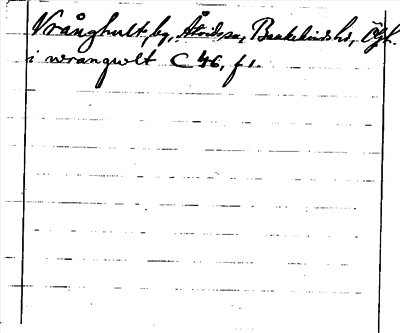 Vrånghult, by, Åtvids sn, Bankekinds hd, Ögl.
i wrangwlt C 46, f 1.